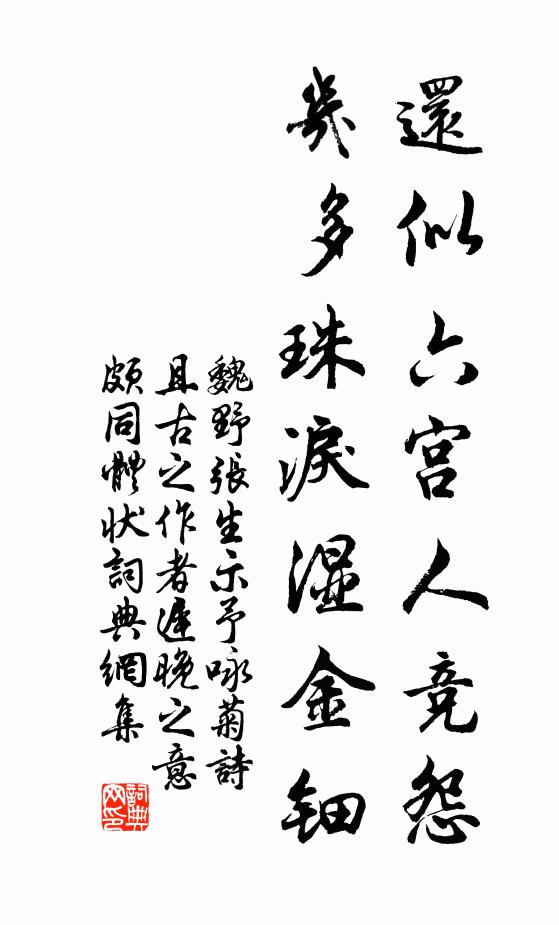 還似六宮人竞怨
幾多珠淚濕金钿
魏野張生示予咏菊詩
且古之作者遲晚之意
頗同體状詞典網集
詞典网印